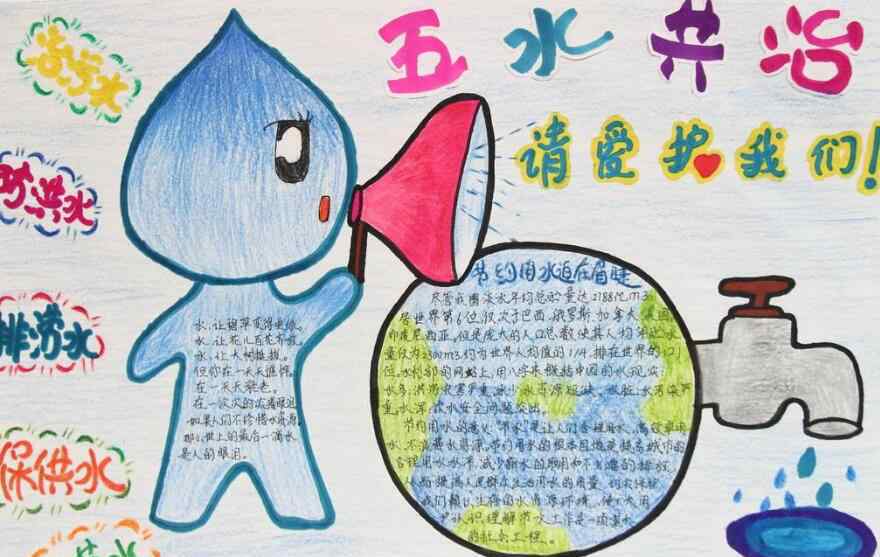 五水共治
请爱护我们!
治污水
防洪水
排涝水
保供水
水,让碧草更得更绿。
水,让花儿百花齐放。
水,让大树挺拔。
但你在一天天
在一天天
在一次次的
如果人们不珍惜水资源,
那么世上的最后一滴水
是人的眼泪。
节约用水迫在眉睫
尽管我国淡水年均总
居世界第6位,仅次于巴西、俄罗斯、加拿大、美国、
印度尼西亚,但是庞大的人口总数使其人均
量仅为2300m3,约为世界人均值的1/4,排在世界的121
位。水利部的网站上,用八字来概括中国的水现实:
水多,洪涝灾害严重,水少,水资源短缺,水脏,水污染严
重,水浑,饮水安全问题突出。
节约用水的意义,节水,是让人们合理用水,高效率用
水,不浪费水资源,节约用水的根本目的是提高城市的
合理用水水平,减少新水的取用和不必要的排放,
从而提高人民群众生活用水的质量,
我们赖以生存的水资源环境,
识理解节水工作是一项重大
的社会工程。